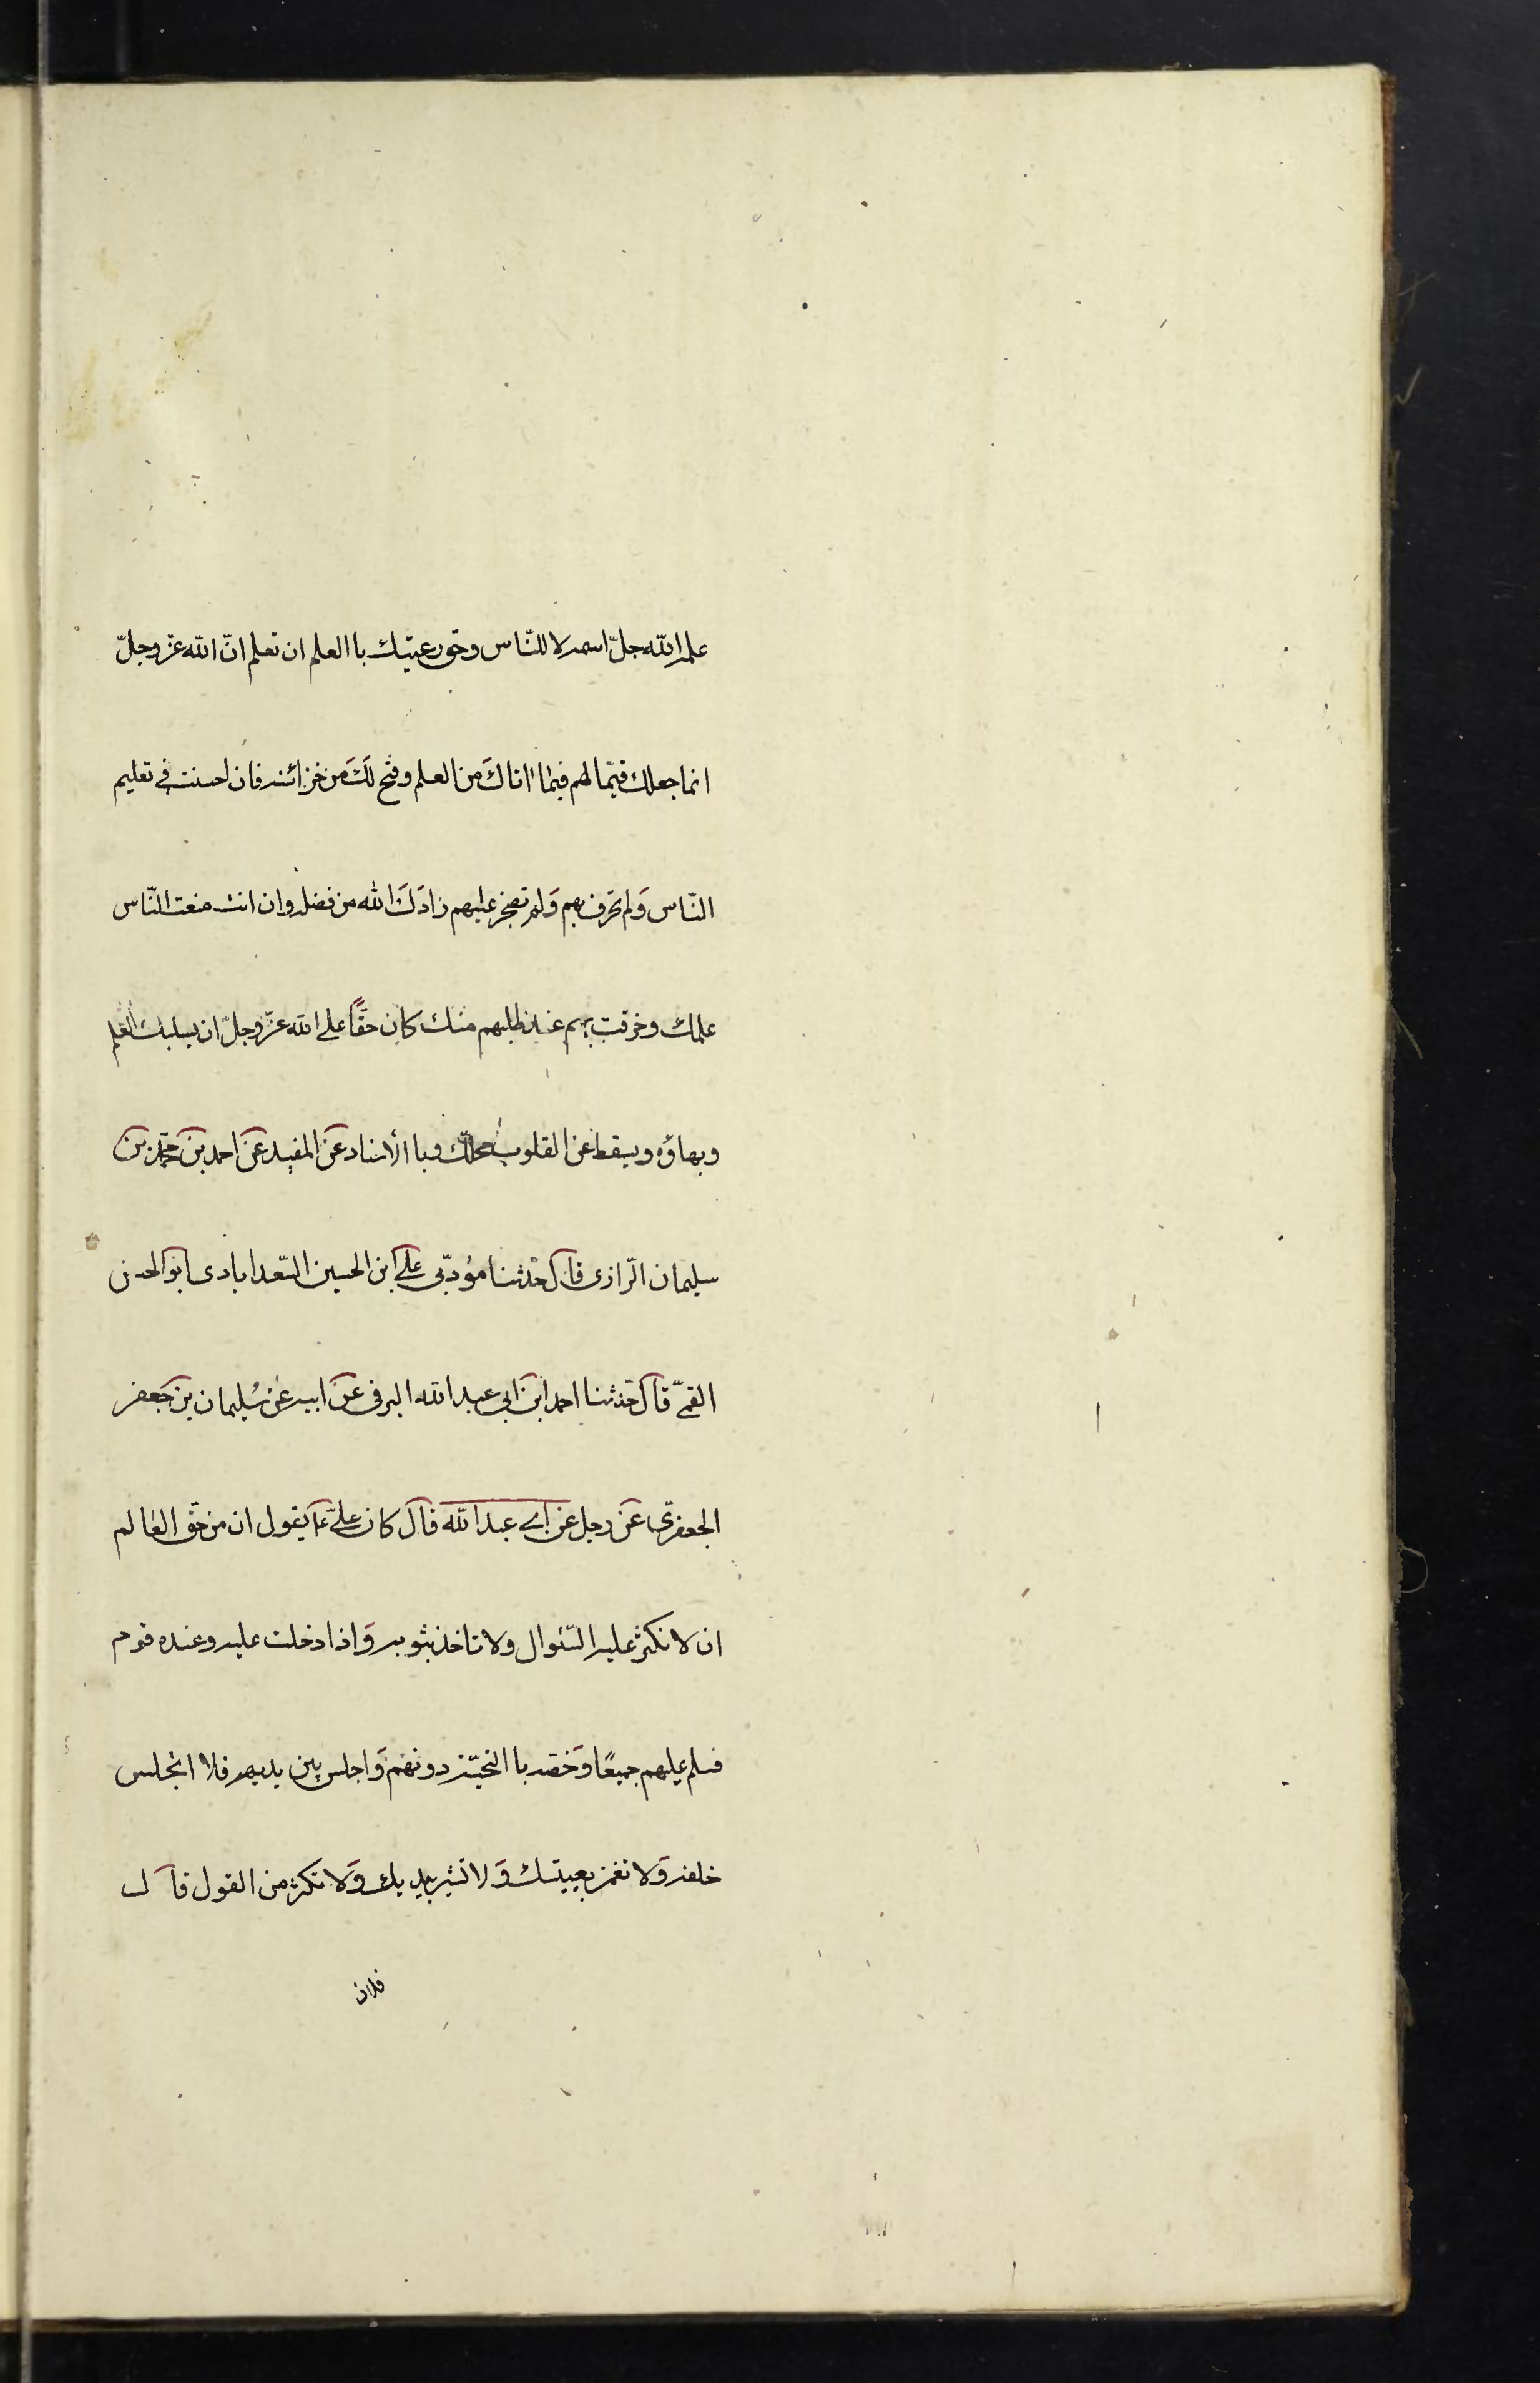 علمه الله جلّ اسمه لا للنّاس وحق رعيتك باالعلم ان تعلم انّ الله عزّ وجلّ
انما جعلك قيّما لهم فيما اتاكَ من العلم وفتح لَكَ مَن خزائنه فان احسنت في تعليم
النّاس وَلم تخرف بهم وَلم تضجر عليهم زادَكَ الله من فضله وان انت منعت النّاس
علمك وخرقت بهم عند طلبهم منك كان حقًّا على الله عزّ وجلّ ان يسلبك العلم
وبهاؤه ويسقط عن القلوب محلك وباالأسناد عن المفيد عن احمد بن محمّد بن
سليمان الرّازى قال حدثنا مؤدّبى على ابن الحسين السّعدابادى ابو الحسن
القمىّ قال حدثنا احمد ابن ابي عبد الله البرقى عن ابيه عن سُليمان بن جعفر
الجعفرىّ عن رجل عن ابى عبد الله قال كان علىّ ع يقول ان من حقّ العالم
ان لا تكثر عليه السّئوال ولا تاخذ بثوبه وَاذا دخلت عليه وعنده قوم
فسلم عليهم جميعًا وَخصّه باالتحيّة دونهم وَاجلس بين يديه فلا اتجلس
خلفه وَلا تغمز بعينك وَلا تشير بيديك وَلا تكثر من القول قال
فلان